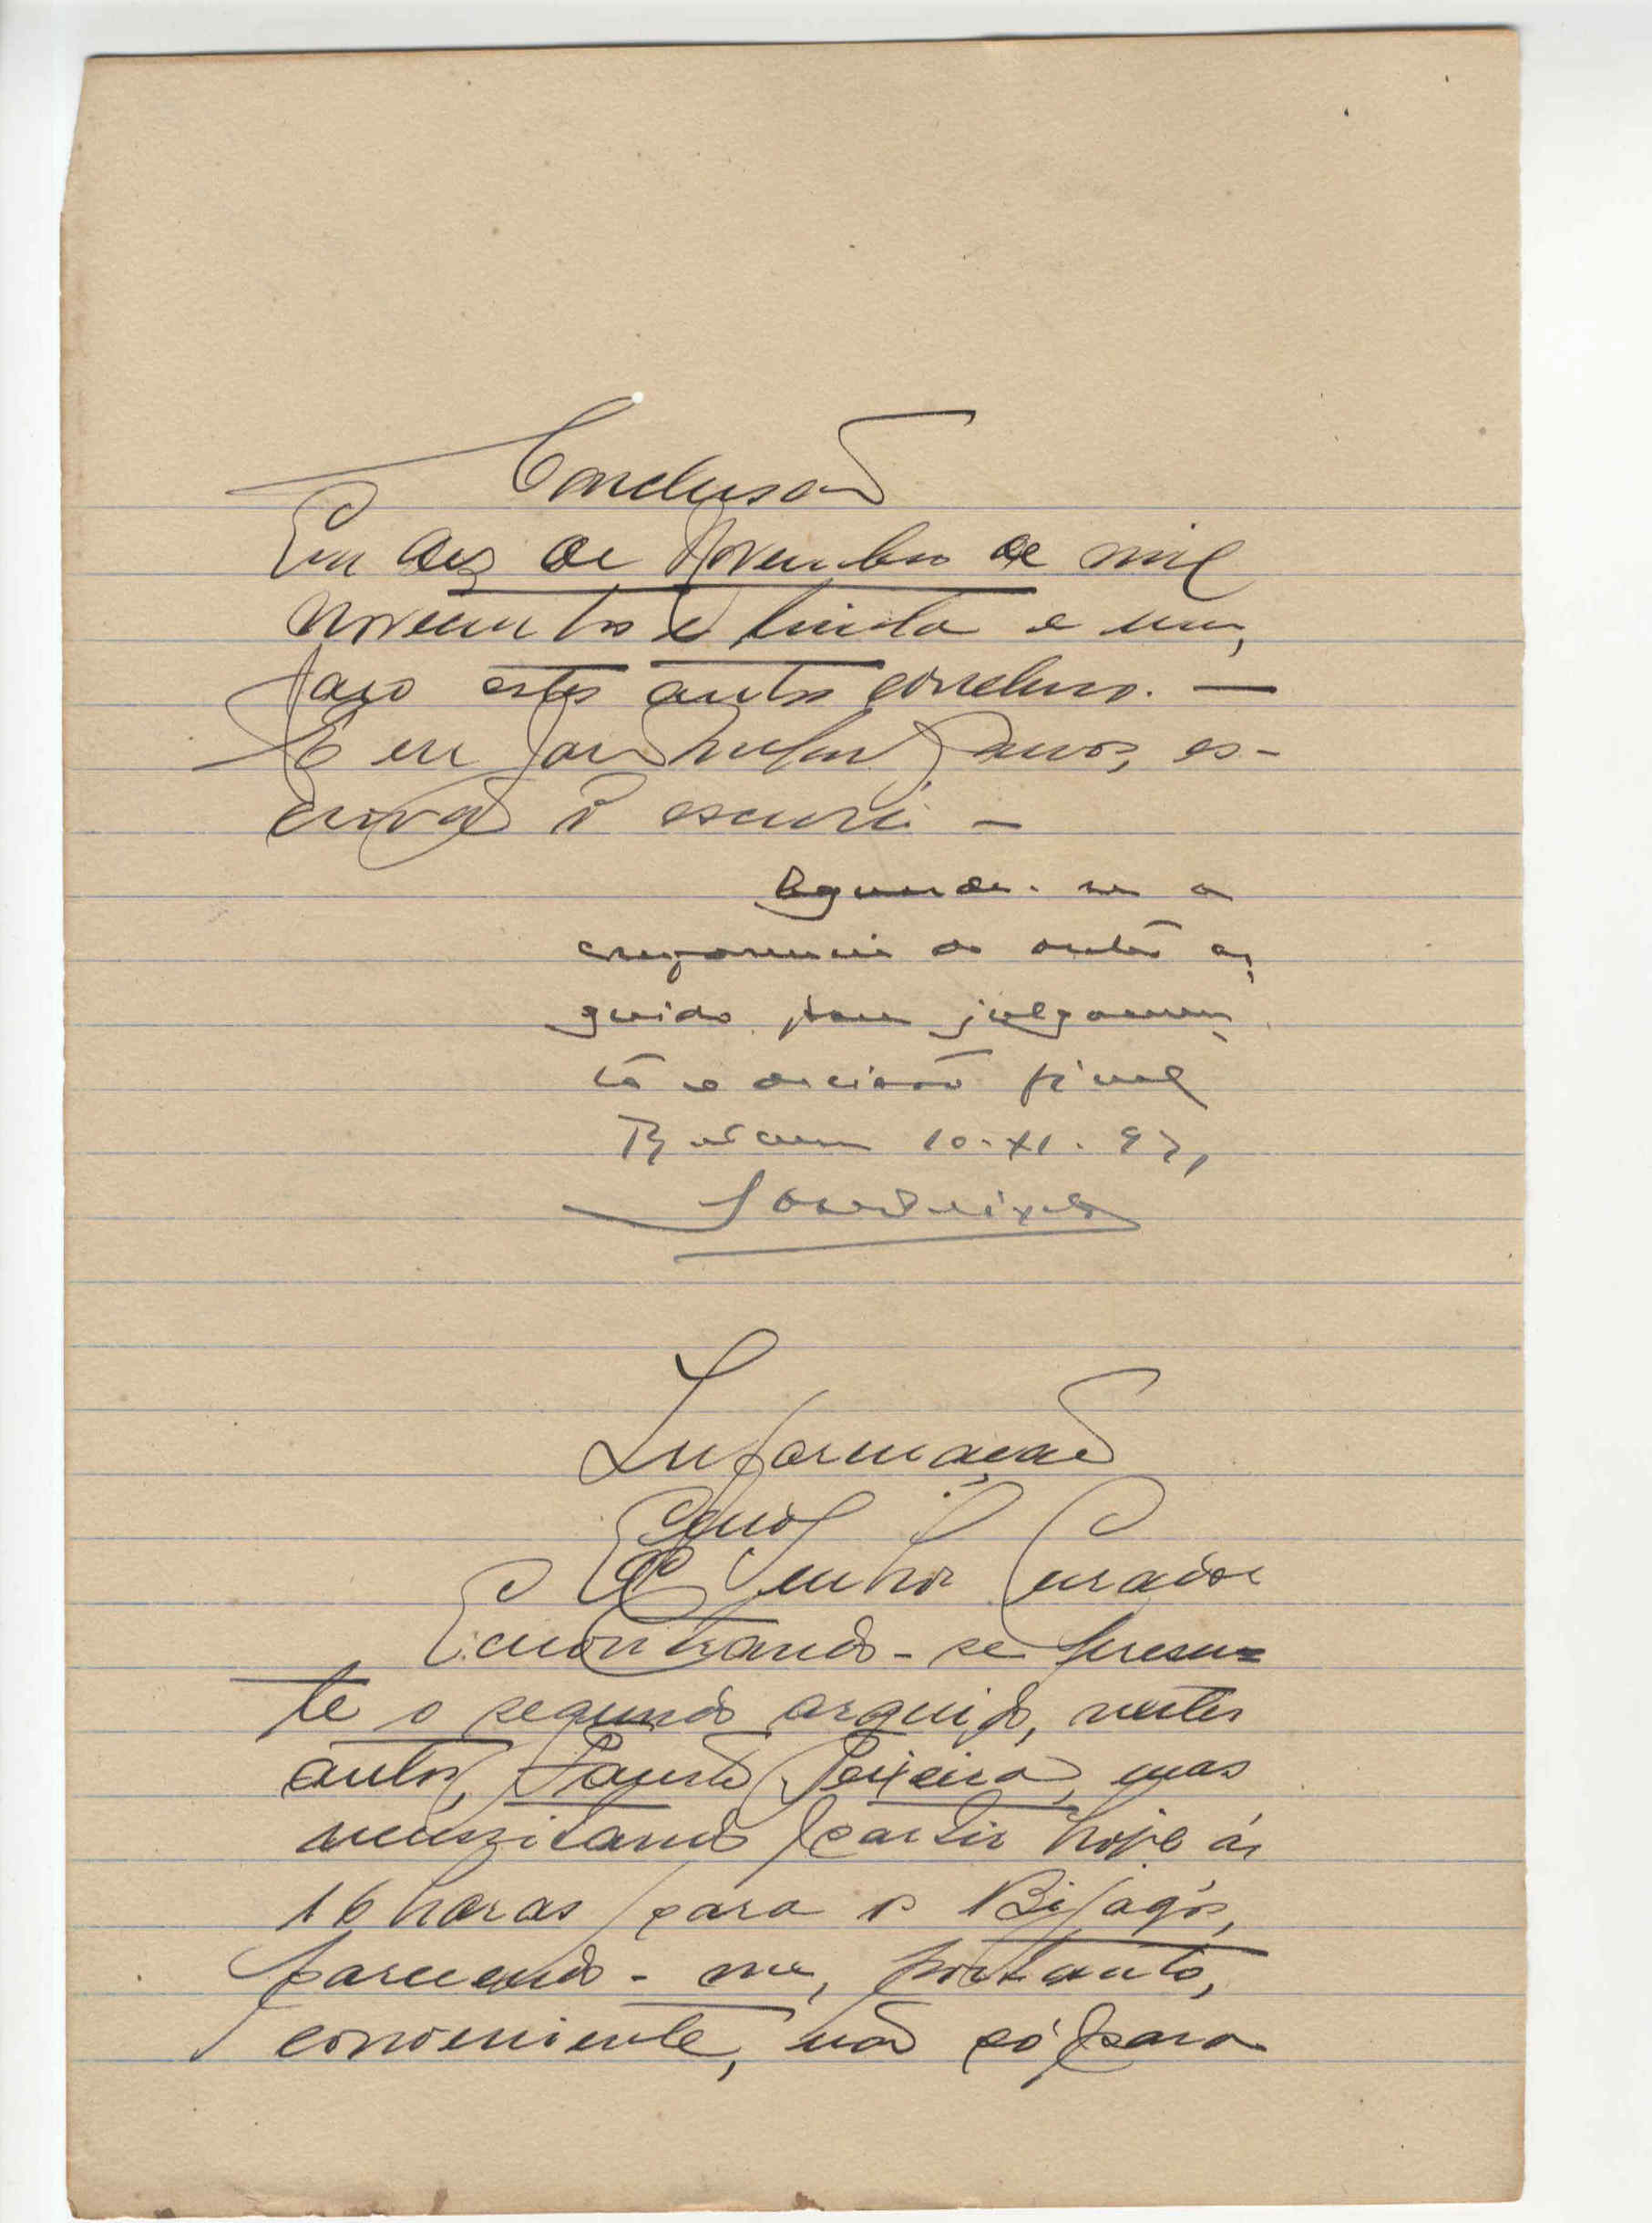 Conclusão
Em dez de Novembro de mil
novecentos e trinta e um,
faço estes autos conclusos. —
E eu João Ramos, es-
crivão o escrevi —
Aguarde-se a
comparencia do outro ar
guido para julgamen
to e decisão final
Bolama 10-XI-
Informação
Senhor Curador
Encontrando-se presen=
te o segundo arguido, nestes
autos, Fausto Teixeira, mas
necessitando partir hoje ás
16 horas para os Bijagós,
parecendo-me, portanto,
conveniente, não só para